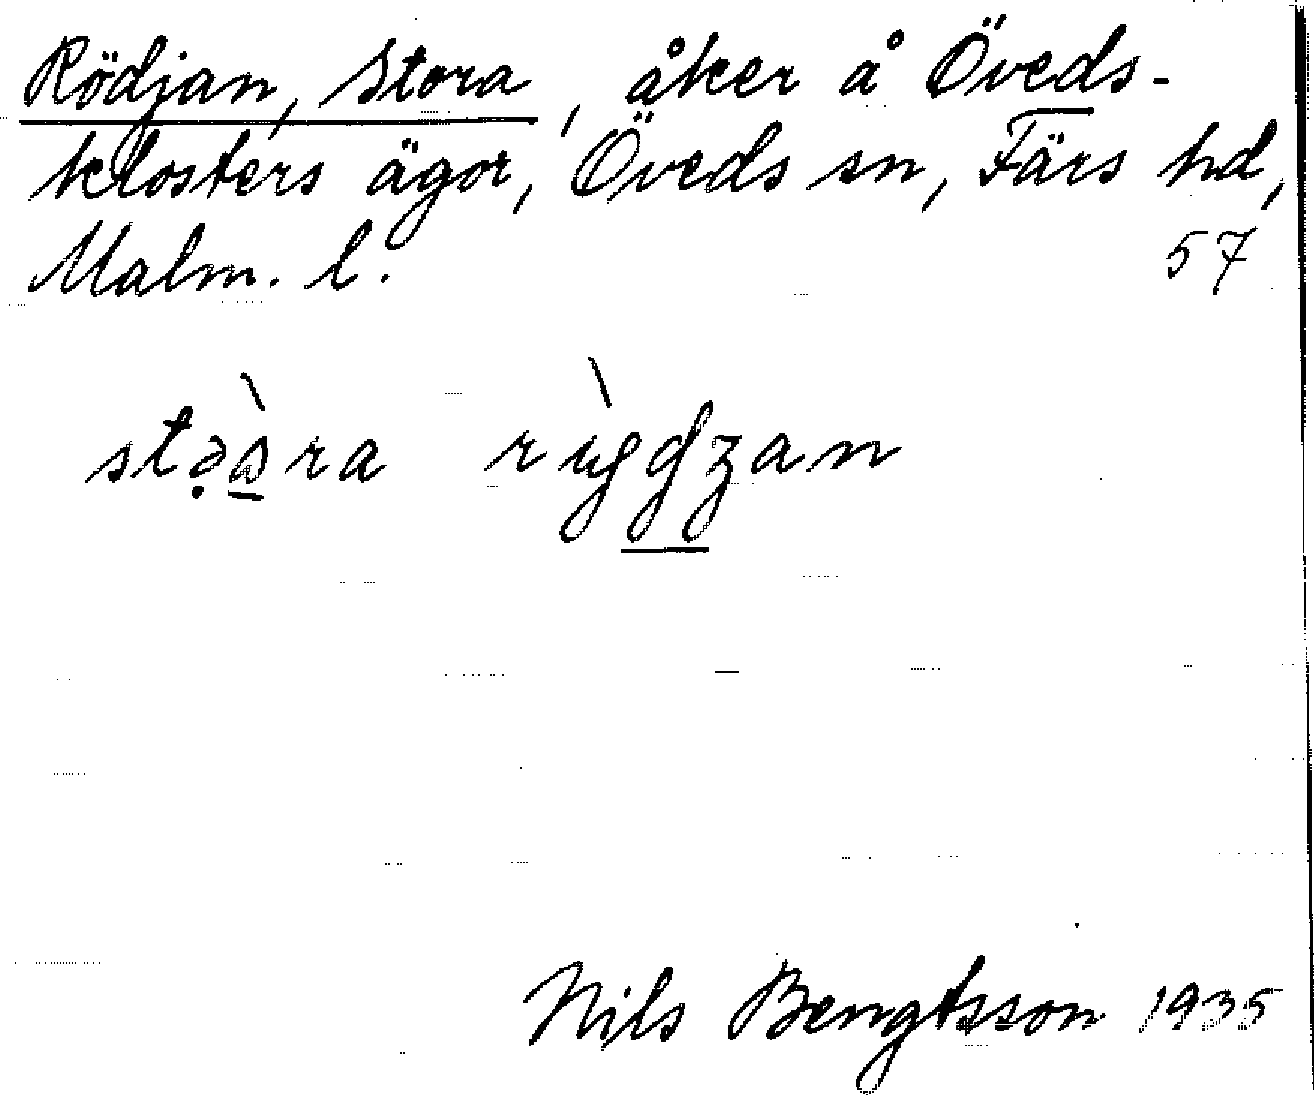 Rödjan, Stora, åker å Öveds-
klosters ägor, Öveds sn, Färs hd,
Malm. l. 57
Nils Bengtsson 1935